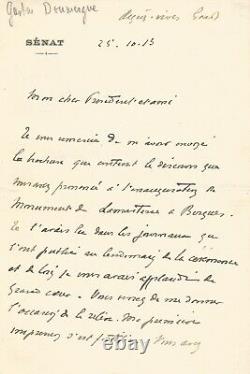 Gaston Doumergue
SÉNAT
25-10-13
Mon cher Président et ami
Je vous remercie de m'avoir envoyé
la brochure que contient le discours que
vous avez prononcé à l'inauguration du
Monument de Lamartine à Bergues.
Je l'avais lu dans les journaux qui
l'ont publié au lendemain de la cérémonie
et de loin je vous avais applaudi de
grand cœur. Vous venez de me donner
l'occasion de le relire. Ma première
impression s'est
Vous avez